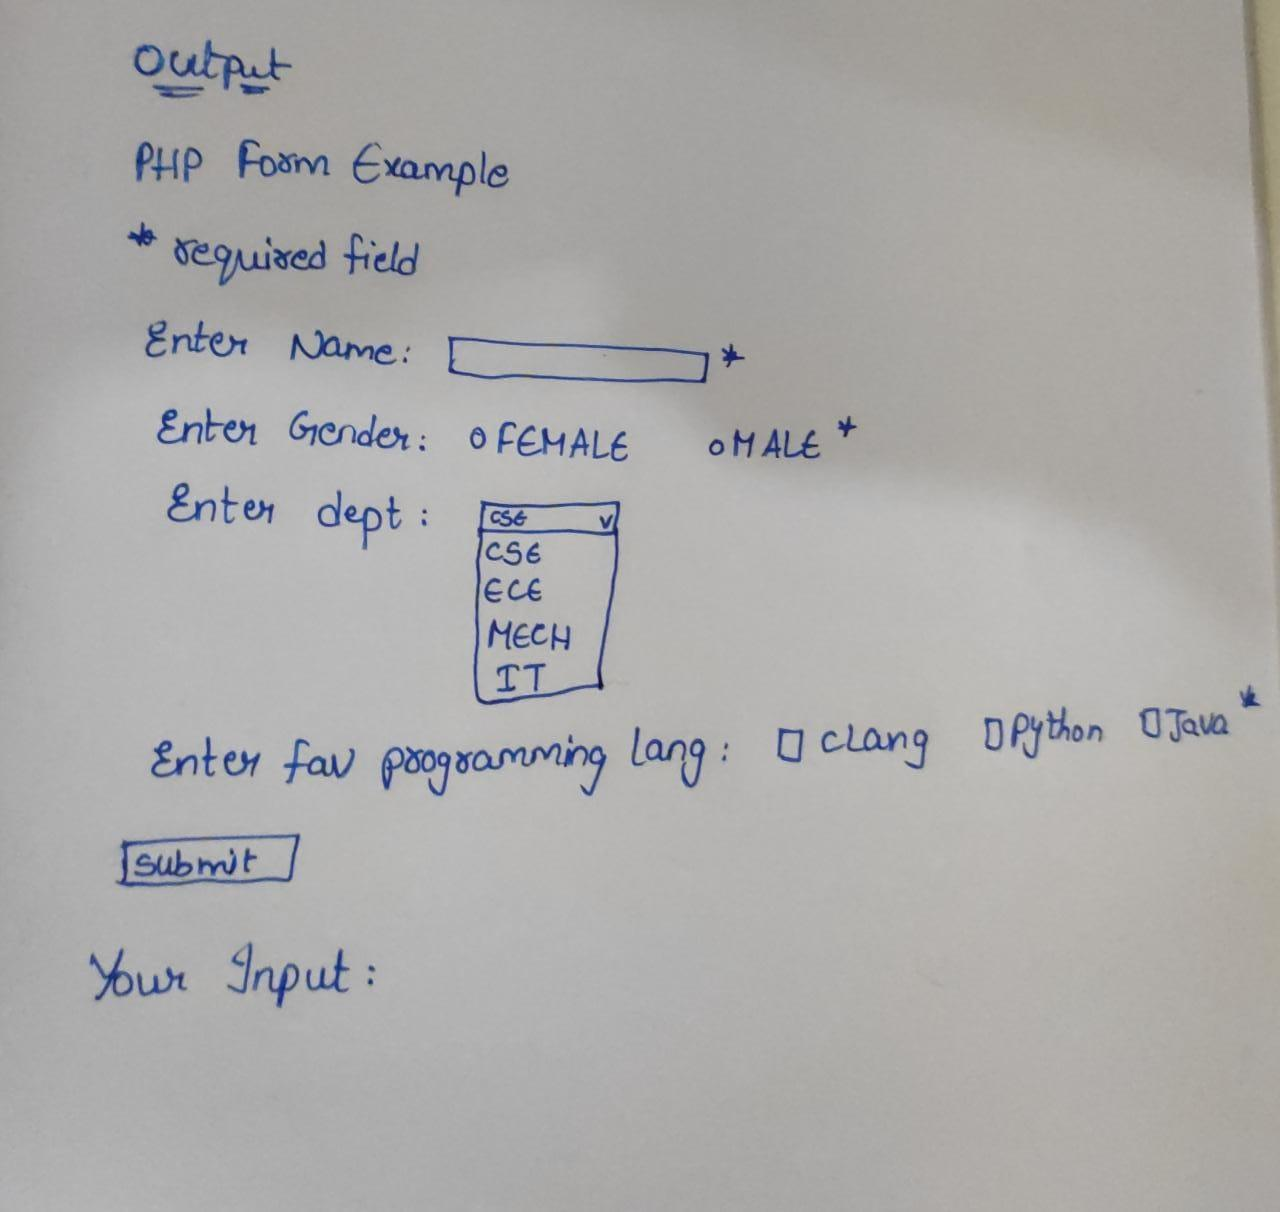 Output
PHP Form Example
* required field
Enter Name: *
Enter Gender: FEMALE MALE *
Enter dept: CSE
CSE
ECE
MECH
IT
Enter fav programming lang: clang Python Java *
submit
Your Input: